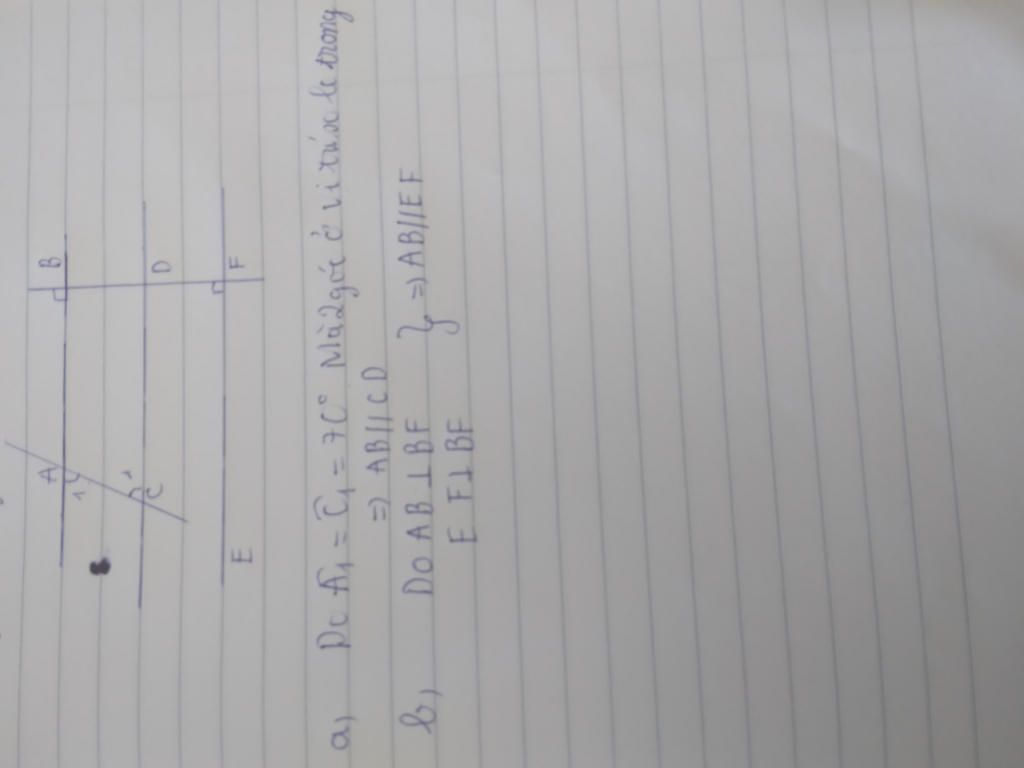 A
B
1
1
C
D
E
F
a, Do Â₁ = Ĉ₁ = 70° Mà 2 góc ở vị trí so le trong
=> AB // CD
b, Do AB ⊥ BF } => AB // EF
EF ⊥ BF